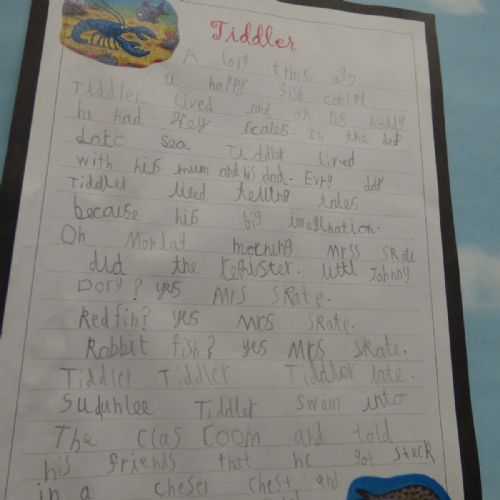 Tiddler
A long time ago
a happy fish called
Tiddler lived and on his boddy
he had grey scales. In the deep
darc sea Tiddler lived
with his mum and his dad. Evry day
Tiddler liked telling tales
because his big imagination.
On Monday morning Mrss Skate
did the register. Little Johnny
Dory? yes Mrs Skate.
Redfin? yes Mrs Skate.
Rabbit fish? yes Mrs Skate.
Tiddler Tiddler Tiddler late.
Suduhlee Tiddler swam into
The clas room and told
his friends that he got stuck
in a cheser chest and